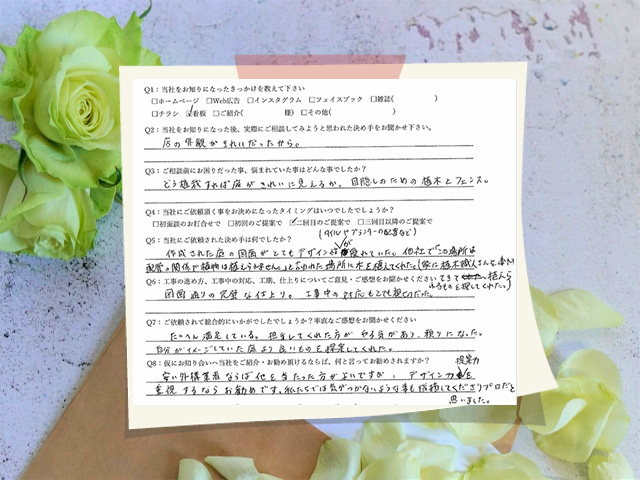 Q1：当社をお知りになったきっかけを教えて下さい
□ホームページ □Web広告 □インスタグラム □フェイスブック □雑誌( )
□チラシ ☑看板 □ご紹介( 様) □その他( )
Q2：当社をお知りになった後、実際にご相談してみようと思われた決め手をお聞かせ下さい。
店の外観がきれいだったから。
Q3：ご相談前にお困りだった事、悩まれていた事はどんな事でしたか？
どう植栽すれば庭がきれいに見えるか。目隠しのための植木とフェンス。
Q4：当社にご依頼頂く事をお決めになったタイミングはいつでしたでしょうか？
□初面談のお打合せで □初回のご提案で ☑二回目のご提案で □三回目以降のご提案で
(タイルやプランターの配置など)
Q5：当社にご依頼された決め手は何でしたか？
作成された庭の図面がとてもデザイン性が優れていた。他社で「この場所は
配管の関係で植物は植えられません」と言われた場所に木を植えてくれた。(家に植木職人さんを
Q6：工事の進め方、工事中の対応、工期、仕上りについてご意見・ご感想をお聞かせください
植えられるものを探してくれた。)
図面通りの完璧な仕上り。工事中の対応もとても親切だった。
Q7：ご依頼されて総合的にいかがでしたでしょうか？率直なご感想をお聞かせください
たいへん満足している。担当してくれた方がやる気があり、頼りになった。
自分がイメージしていた庭より良いものを提案してくれた。
Q8：仮にお知り合いへ当社をご紹介・お勧め頂けるならば、何と言ってお勧めされますか？
提案力
安い外構業者ならば他を当たった方がよいですが、デザイン力を
重視するならお勧めです。私たちでは気がつかないような事も指摘してくださりプロだと
思いました。